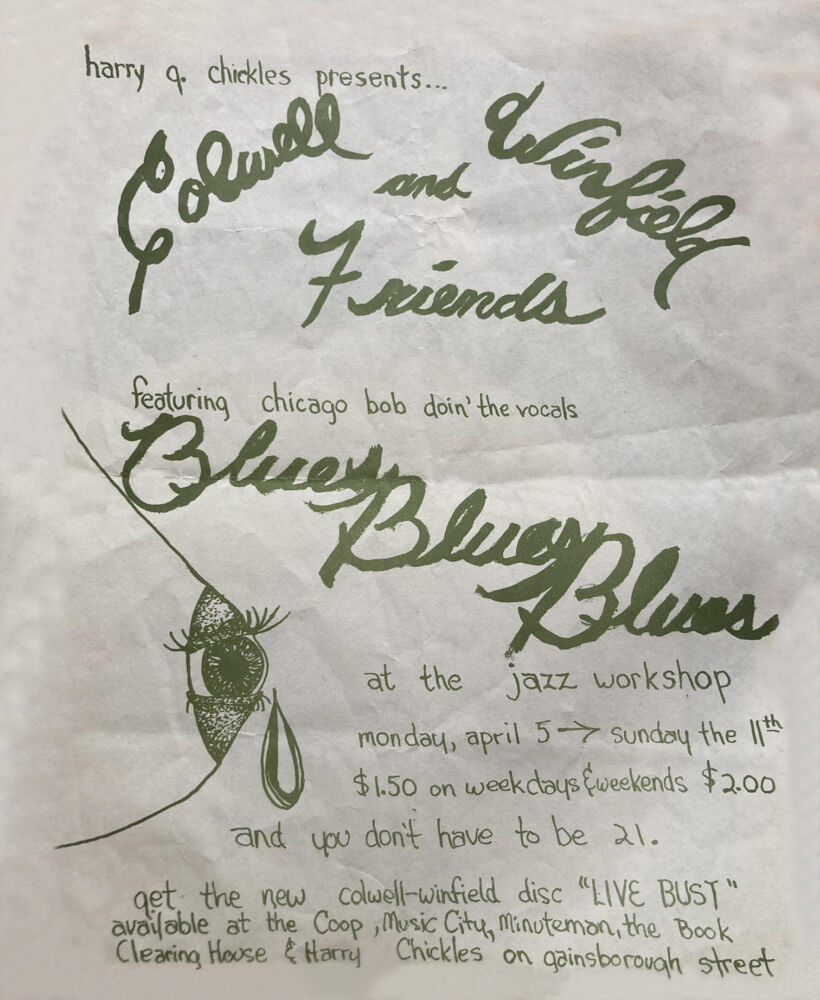 harry q. chickles presents...
Colwell Winfield
and
Friends
featuring chicago bob doin' the vocals
Blues
Blues
Blues
at the jazz workshop
monday, april 5 → sunday the 11th
$1.50 on weekdays & weekends $2.00
and you don't have to be 21.
get the new colwell-winfield disc "LIVE BUST"
available at the Coop, Music City, Minuteman, the Book
Clearing House & Harry Chickles on gainsborough street